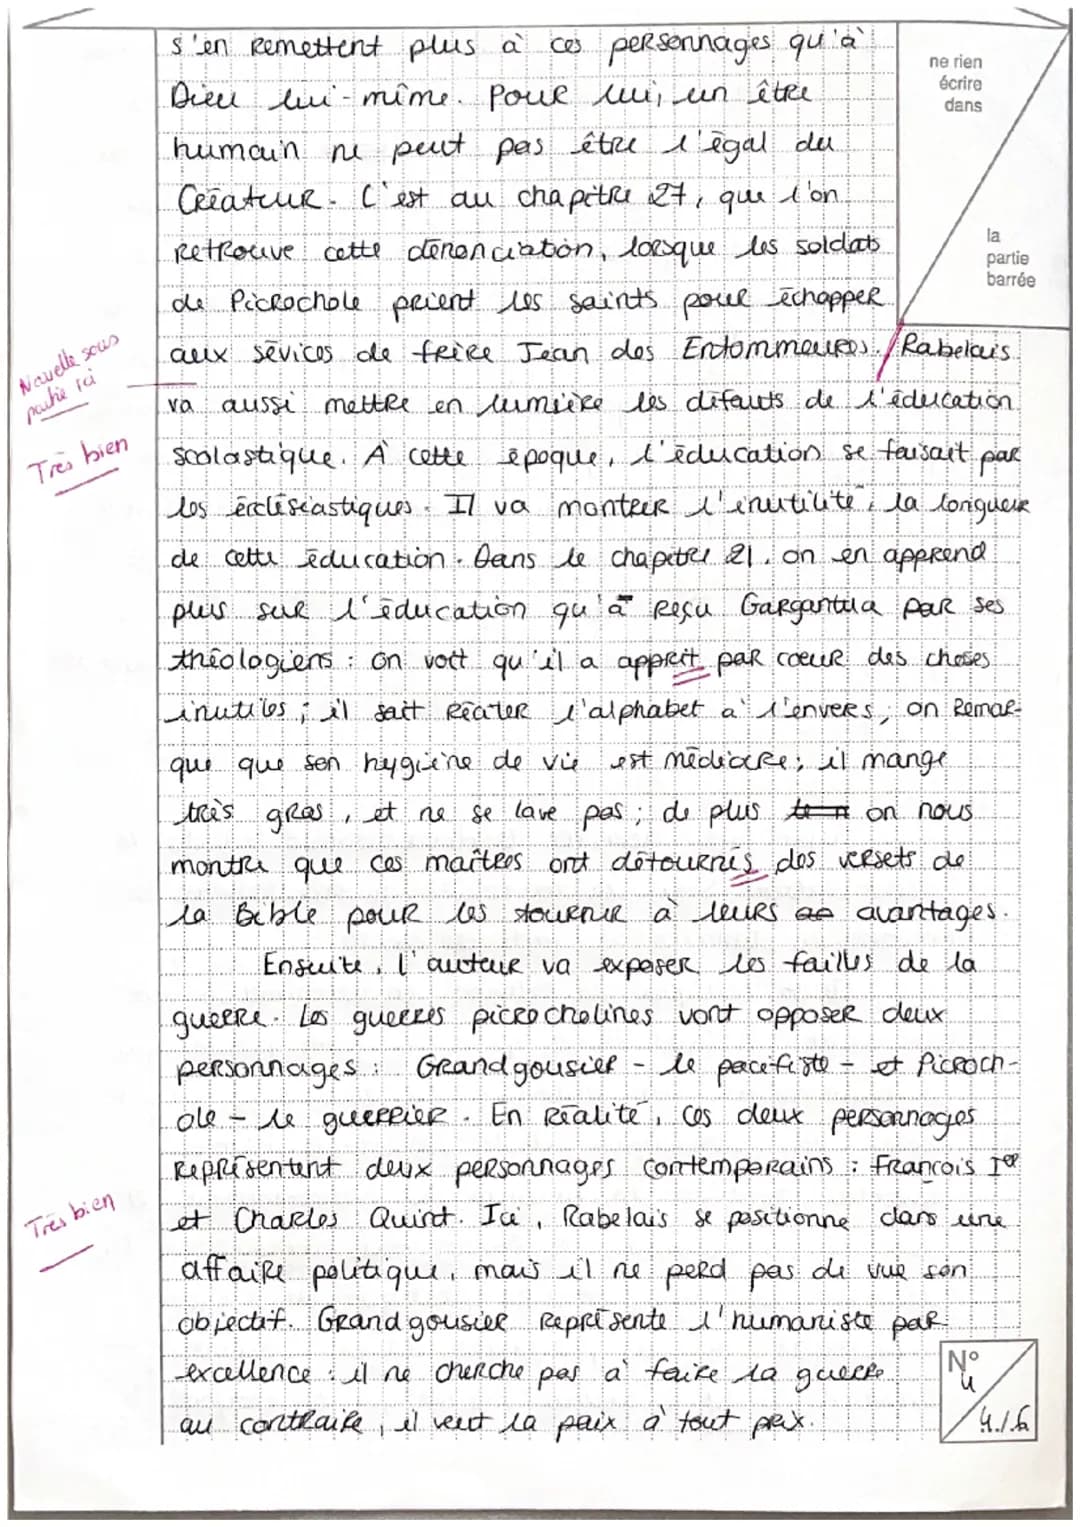 s'en remettent plus à ces personnages qu'à
Dieu lui-même. Pour lui, un être
humain ne peut pas être l'égal du
Créateur. C'est au chapitre 27, que l'on
retrouve cette dénonciation, lorsque les soldats
de Picrochole prient les saints pour échapper
aux sévices de frère Jean des Entommeures. / Rabelais
va aussi mettre en lumière les défauts de l'éducation
scolastique. À cette époque, l'éducation se faisait par
les ecclésiastiques. Il va montrer l'inutilité, la longueur
de cette éducation. Dans le chapitre 21, on en apprend
plus sur l'éducation qu'à reçu Gargantua par ses
théologiens : on voit qu'il a apprit par cœur des choses
inutiles ; il sait réciter l'alphabet à l'envers, on remar-
que que son hygiène de vie est médiocre ; il mange
très gras, et ne se lave pas ; de plus on nous
montre que ces maîtres ont détournés des versets de
la Bible pour les tourner à leurs avantages.
Ensuite, l'auteur va exposer les failles de la
guerre. Les guerres picrocholines vont opposer deux
personnages : Grandgousier - le pacifiste - et Picroch-
ole - le guerrier. En réalité, ces deux personnages
représentent deux personnages contemporains : François Ier
et Charles Quint. Ici, Rabelais se positionne dans une
affaire politique, mais il ne perd pas de vue son
objectif. Grandgousier représente l'humaniste par
excellence : il ne cherche pas à faire la guerre
au contraire, il veut la paix à tout prix.
ne rien
écrire
dans
la
partie
barrée
Nouvelle sous
partie ici
Très bien
Très bien
N°
4
4./.6